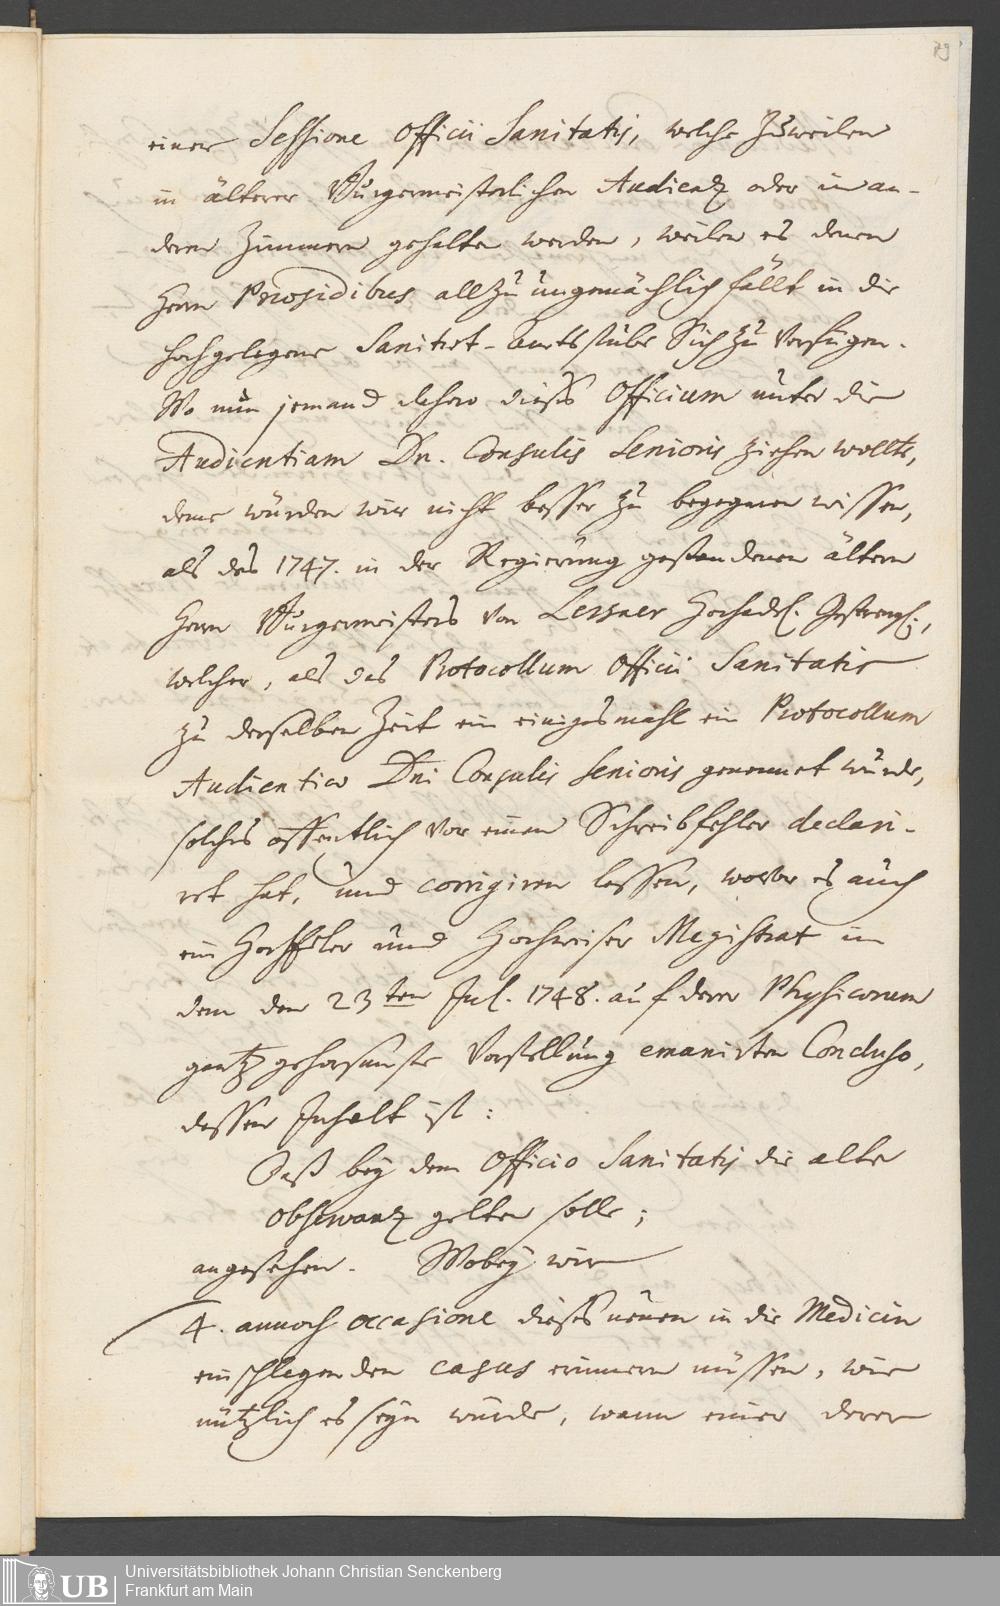 79
einer Sessione Officii Sanitatis, welche zuweilen
in älterer Burgermeisterlichen Audienz oder in an-
deren Zimmern gehalten werden, weilen es denen
Herrn Præsidibus allzu ungemächlich fällt in die
hochgelegene Sanitæt-amtsstube Sich zu verfügen.
Wo nun jemand dahero dieses Officium unter die
Audientiam Dn. Consulis Senioris ziehen wollte,
deme würden wir nicht besser zu begegnen wissen,
als des 1747. in der Regierung gestandenen ältern
Herrn Burgermeisters von Lersner Hochadel. Gestreng.,
welcher, als das Protocollum Officii Sanitatis
zu derselben Zeit ein einigesmahl ein Protocollum
Audientiæ Dni Consulis Senioris genennet wurde,
solches offentlich vor einen Schreibfehler declari-
ret hat, und corrigiren lassen, wovor es auch
ein HochEdler und Hochweiser Magistrat in
dem den 23ten Jul. 1748. auf derer Physicorum
gantz gehorsamste Vorstellung emanirten Concluso,
dessen Inhalt ist:
Daß bey dem Officio Sanitatis die alte
Observanz gelten solle;
angesehen. Wobey wir
4. annoch occasione dieses neuen in die Medicin
einschlagenden casus erinnern müssen, wie
nützlich es seyn würde, wann einer derer
UB Universitätsbibliothek Johann Christian Senckenberg
Frankfurt am Main